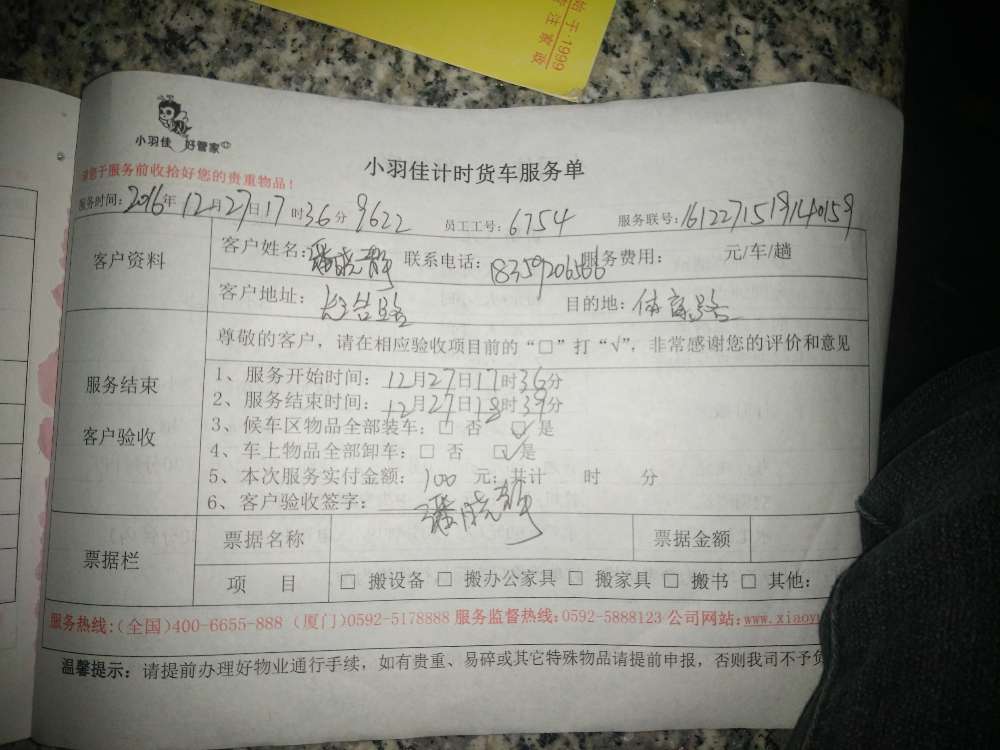 千·1999
注 家政
小羽佳 好管家
小羽佳计时货车服务单
请您于服务前收拾好您的贵重物品！
服务时间：2016年12月27日17时36分 9622 员工工号：6754 服务联号：1612271519140159
客户资料
客户姓名：潘晓静 联系电话：18359206566 服务费用： 元/车/趟
客户地址：长台路 目的地：体育路
尊敬的客户，请在相应验收项目前的“□”打“√”，非常感谢您的评价和意见
服务结束
客户验收
1、服务开始时间：12月27日17时36分
2、服务结束时间：12月27日18时39分
3、候车区物品全部装车：□ 否 ☑ 是
4、车上物品全部卸车：□ 否 ☑ 是
5、本次服务实付金额：100 元；共计 时 分
6、客户验收签字：潘晓静
票据栏
票据名称 票据金额
项 目 □ 搬设备 □ 搬办公家具 □ 搬家具 □ 搬书 □ 其他：
服务热线：(全国)400-6655-888 (厦门)0592-5178888 服务监督热线：0592-5888123 公司网站：www.xiaoyu
温馨提示：请提前办理好物业通行手续，如有贵重、易碎或其它特殊物品请提前申报，否则我司不予负